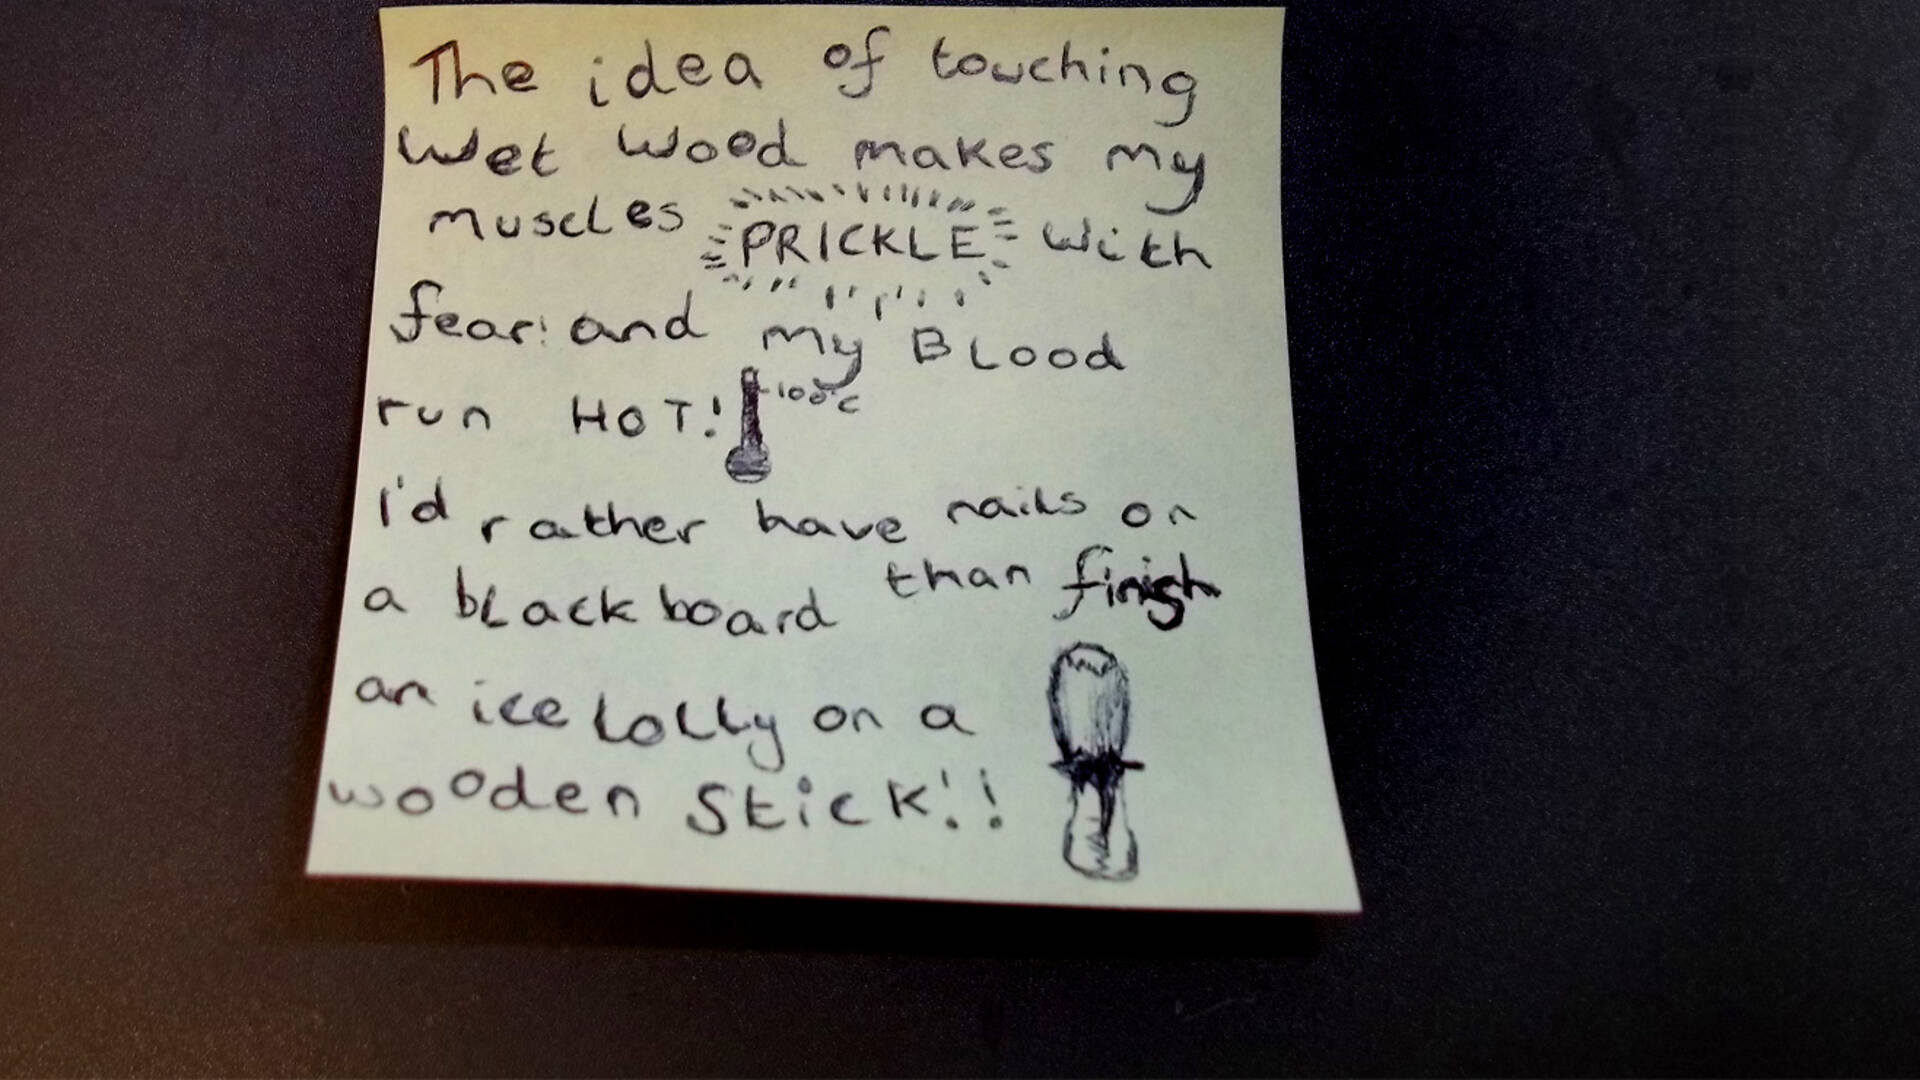 The idea of touching
wet wood makes my
muscles PRICKLE with
fear! and my Blood
run HOT! 100°C
I'd rather have nails on
a blackboard than finish
an ice lolly on a
wooden Stick!!